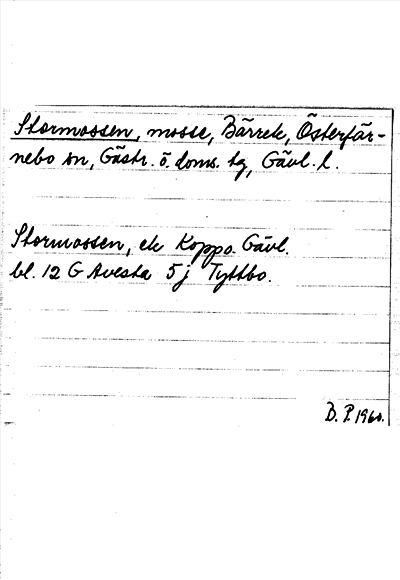 Stormossen, mosse, Bärrek, Österfär-
nebo sn, Gästr. ö. doms. tg, Gävl. l.
Stormossen, ek Koppo. Gävl.
bl. 12 G Avesta 5 j Tyttbo.
B. P. 1960.